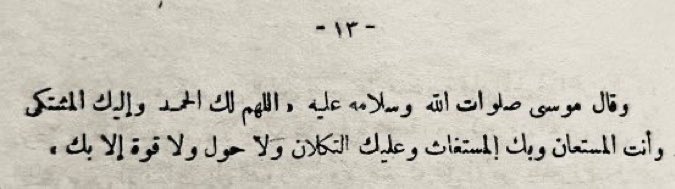 - ١٣ -
وقال موسى صلوات الله وسلامه عليه ، اللهم لك الحمد وإليك المشتكى
وأنت المستعان وبك المستغاث وعليك التكلان ولا حول ولا قوة إلا بك ،